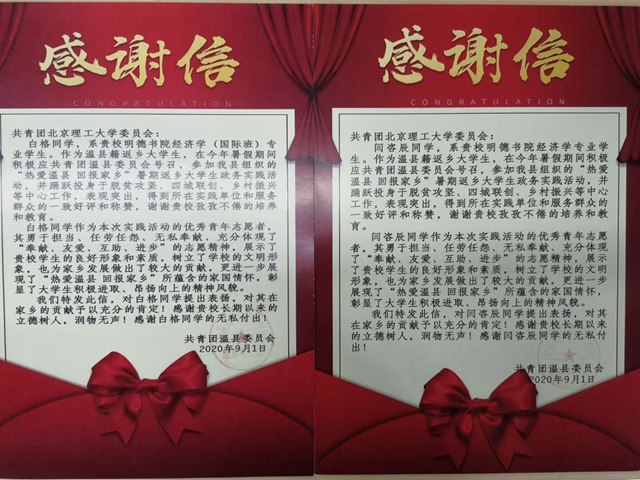 感谢信
CONGRATULATION
共青团北京理工大学委员会：
白格同学，系贵校明德书院经济学（国际班）专
业学生。作为温县籍返乡大学生，在今年暑假期间
积极应共青团温县委员会号召，参加我县组织的
“热爱温县 回报家乡”暑期返乡大学生政务实践活
动，并踊跃投身于脱贫攻坚、四城联创、乡村振兴
等中心工作，表现突出，得到所在实践单位和服务
群众的一致好评和称赞，谢谢贵校孜孜不倦的培养
和教育。
白格同学作为本次实践活动的优秀青年志愿者，
其勇于担当、任劳任怨、无私奉献，充分体现了
“奉献、友爱、互助、进步”的志愿精神，展示了
贵校学生的良好形象和素质，树立了学校的文明形
象，也为家乡发展做出了较大的贡献，更进一步展
现了“热爱温县 回报家乡”所蕴含的家国情怀，彰
显了大学生积极进取、昂扬向上的精神风貌。
我们特发此信，对白格同学提出表扬，对其在
家乡的贡献予以充分的肯定！感谢贵校长期以来的
立德树人，润物无声！感谢白格同学的无私付出！
共青团温县委员会
2020年9月1日
感谢信
CONGRATULATION
共青团北京理工大学委员会：
闫咨辰同学，系贵校明德书院经济学专业学
生。作为温县籍返乡大学生，在今年暑假期间积极
应共青团温县委员会号召，参加我县组织的“热爱
温县 回报家乡”暑期返乡大学生政务实践活动，并
踊跃投身于脱贫攻坚、四城联创、乡村振兴等中心
工作，表现突出，得到所在实践单位和服务群众的
一致好评和称赞，谢谢贵校孜孜不倦的培养和教
育。
闫咨辰同学作为本次实践活动的优秀青年志愿
者，其勇于担当、任劳任怨、无私奉献，充分体现
了“奉献、友爱、互助、进步”的志愿精神，展示
了贵校学生的良好形象和素质，树立了学校的文明
形象，也为家乡发展做出了较大的贡献，更进一步
展现了“热爱温县 回报家乡”所蕴含的家国情怀，
彰显了大学生积极进取、昂扬向上的精神风貌。
我们特发此信，对闫咨辰同学提出表扬，对其
在家乡的贡献予以充分的肯定！感谢贵校长期以来
的立德树人，润物无声！感谢闫咨辰同学的无私付
出！
共青团温县委员会
2020年9月1日